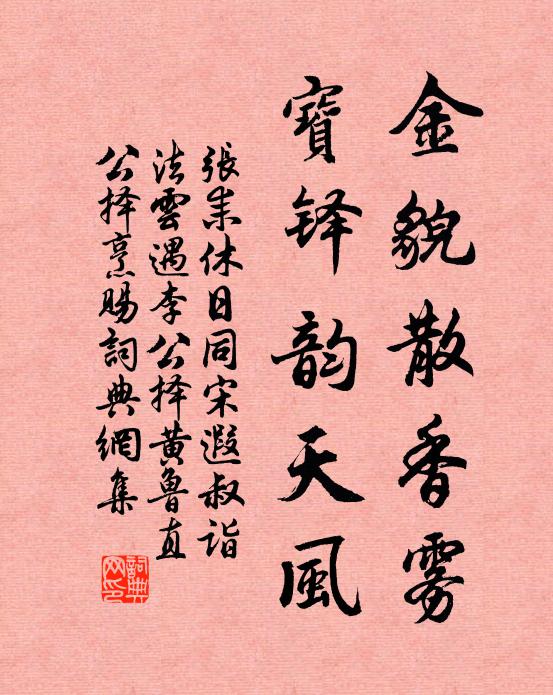 金貌散香雾
寶铎韵天風
張耒休日同宋遐叔詣
法雲遇李公择黄魯直
公择烹賜詞典網集
詞典
网印